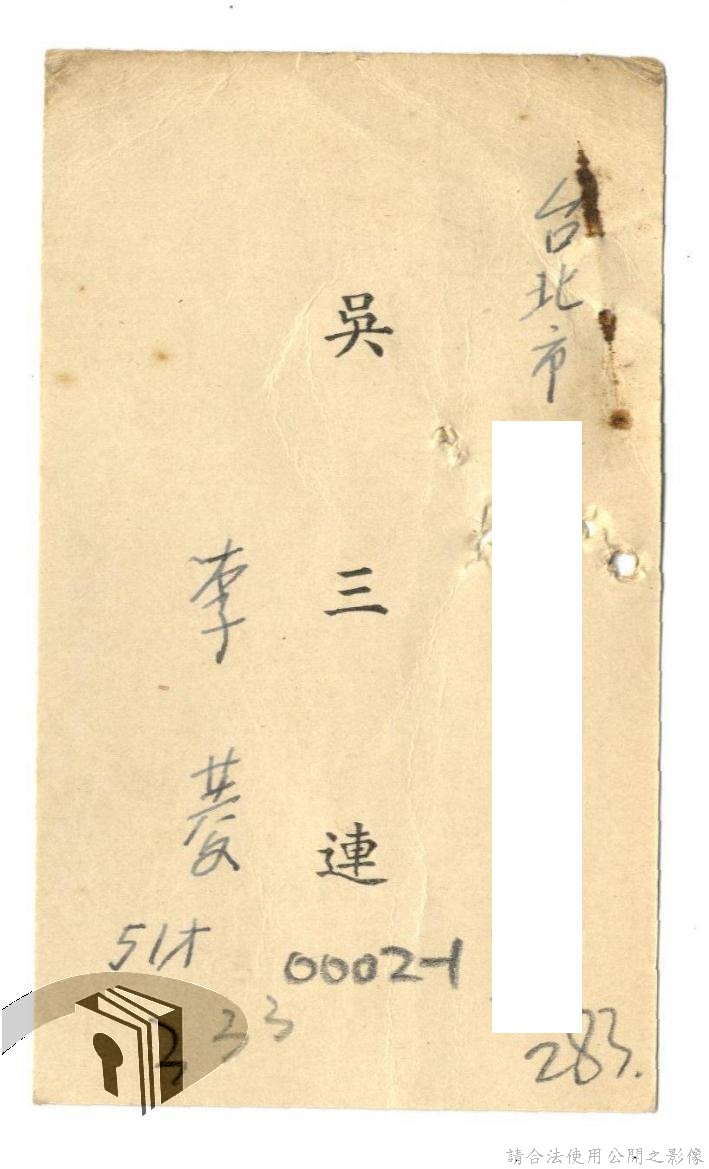 台北市
吳三連
李菱
51才
0002-1
333
283.
請合法使用公開之影像